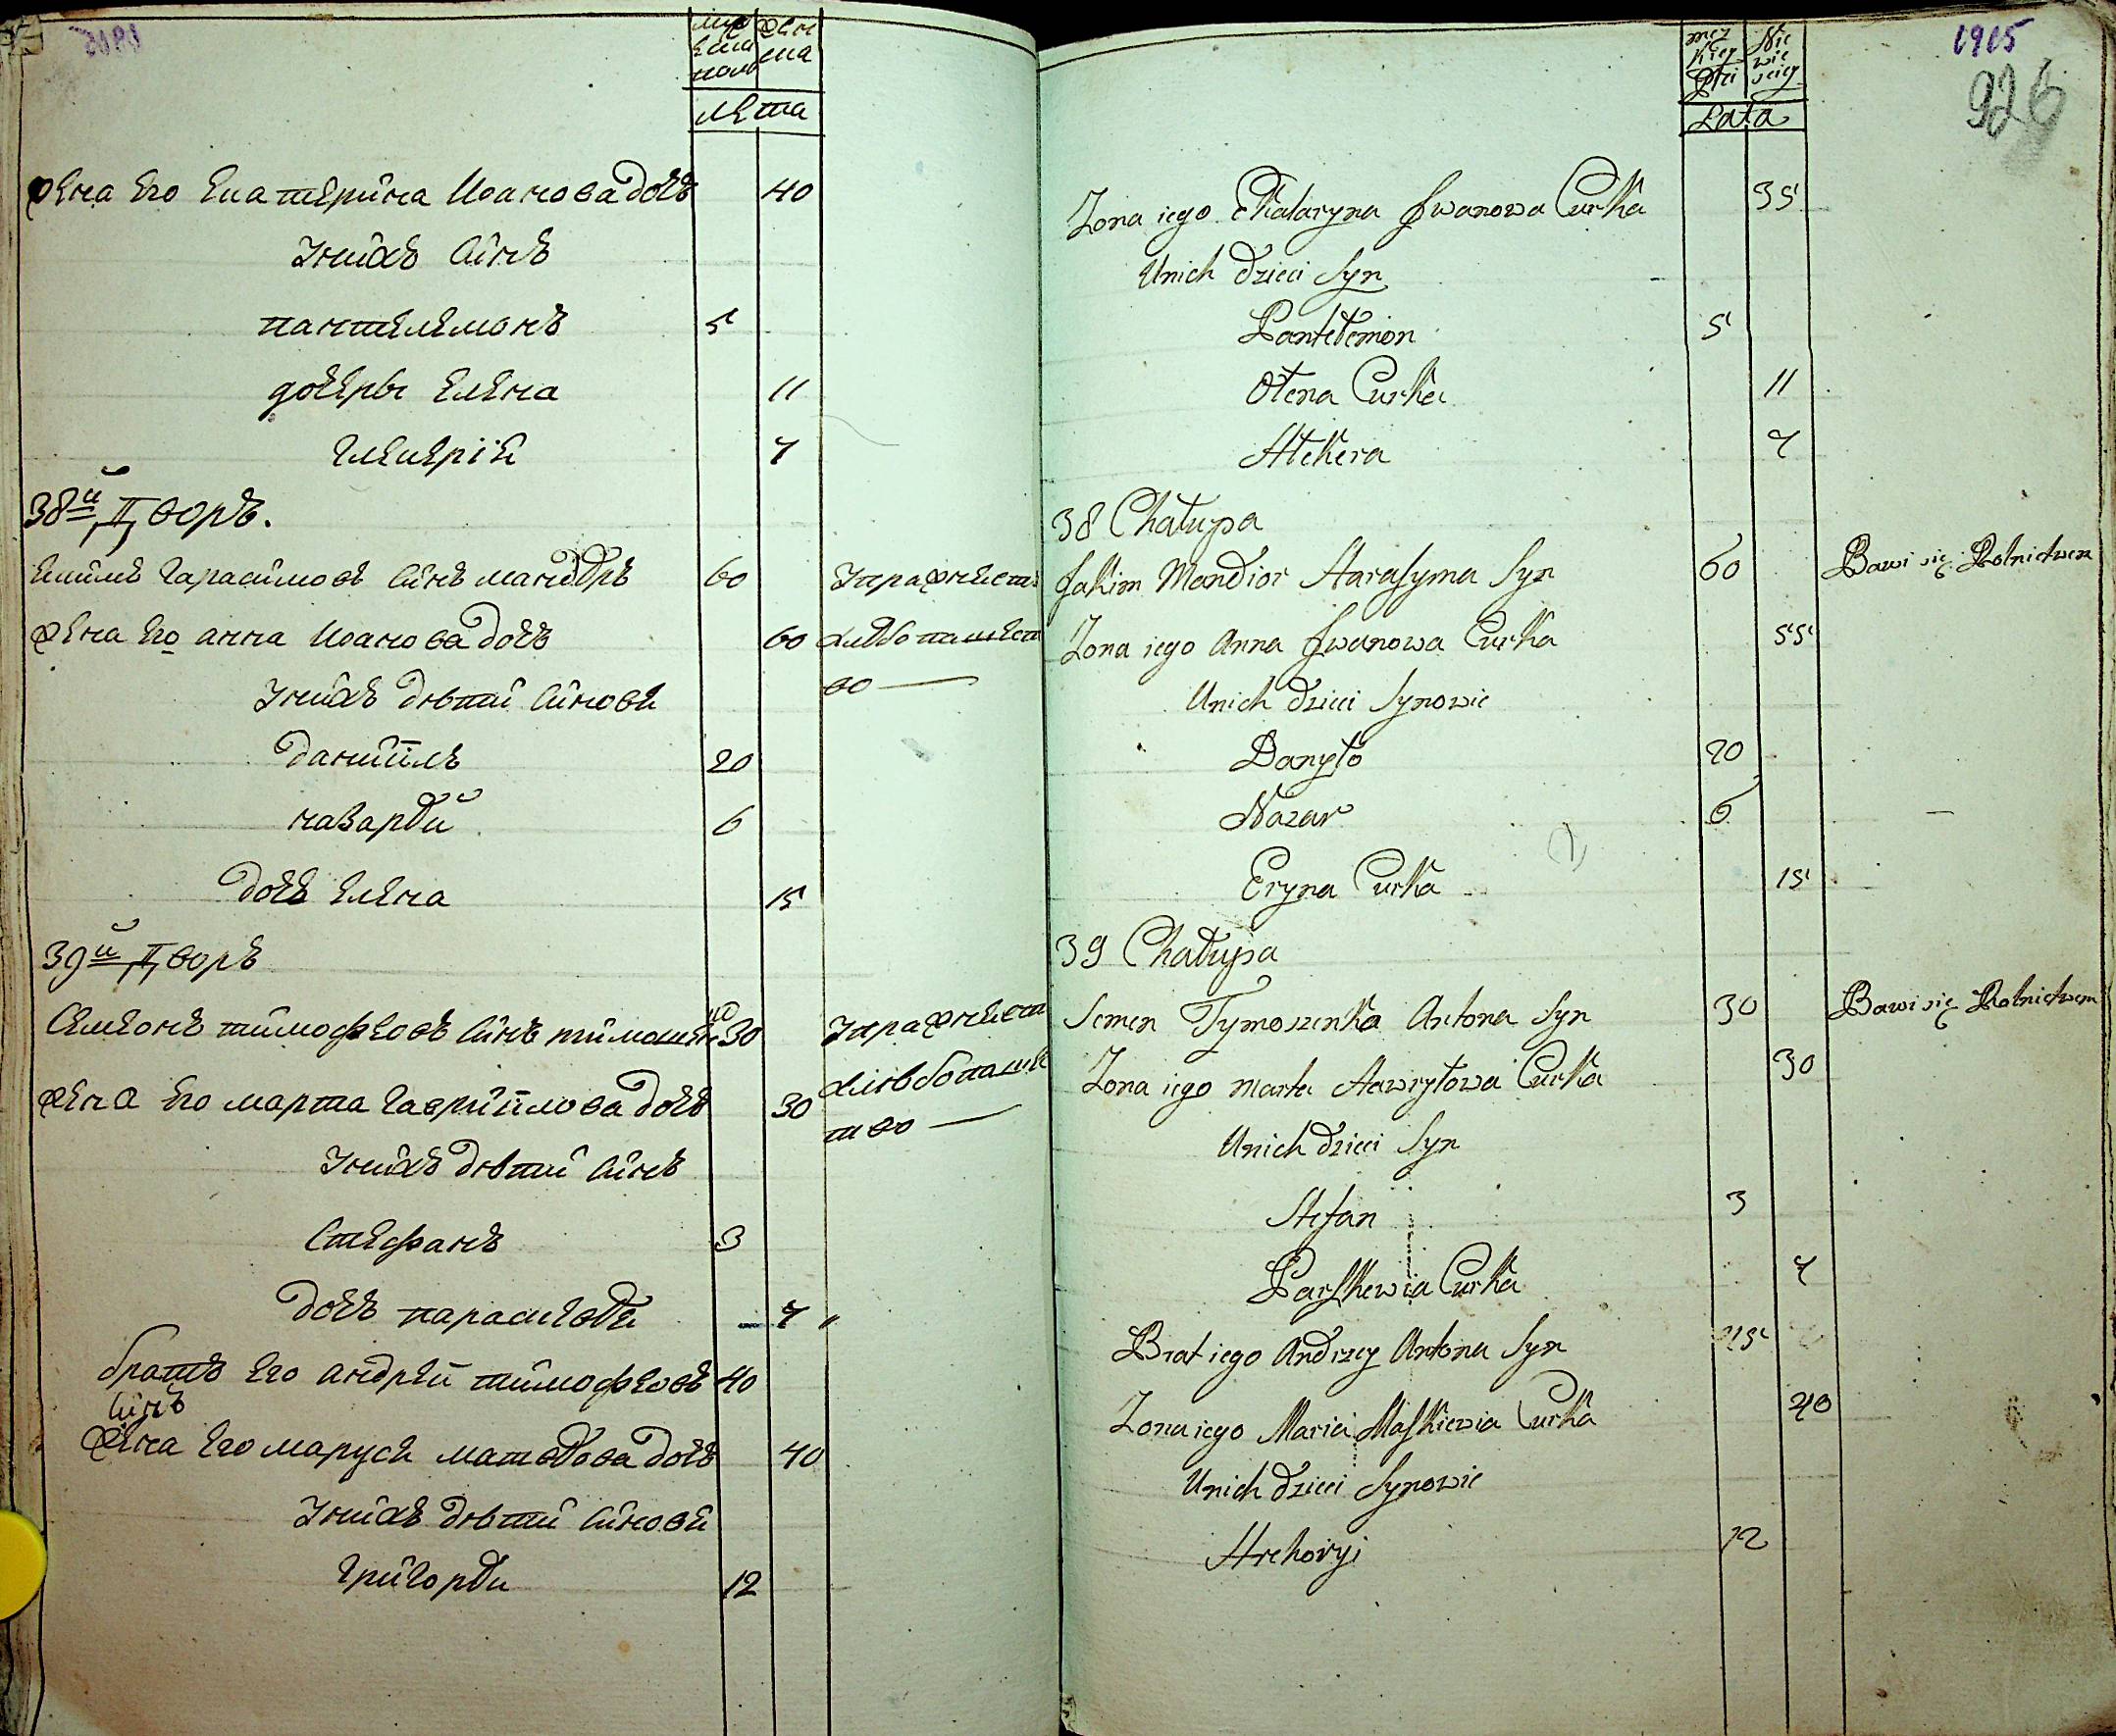 лета
жена его екатерина Иоанова дочь 40
У них сінъ
пантелемонъ 5
дочеры елена 11
гликерія 7
38й дворъ.
екимъ гарасимовъ сінъ мандзръ 60 Упражняетъ
жена его анна Иоанова дочь 60 хлѣбопашест
во
У них дѣти сінови
даниилъ 20
назарѣй 6
дочь елена 15
39й дворъ
Симеонъ тимофеовъ сінъ тимошенко 30 Упражняетъ
жена его марта гавриилова дочь 30 хлѣбопаше
ство
У нихъ дѣти сінъ
Стефанъ 3
дочь параскевѣя 7
братъ его андрей тимофеовъ 40
сінъ
жена его маруся матвѣева дочь 40
У нихъ дѣти сінови
григорѣй 12
1915
926
męz Nie
kiey wie
płci sciey
Lata
Zona iego Ekataryna Jwanowa Curka 35
Unich dzieci Syn
Pantełemon 5
Ołena Curka 11
Hłekera 7
38 Chałupa
Jakim Mandior Harasyma Syn 60 Bawi się Rolnictwem
Zona iego Anna Jwanowa Curka 55
Unich dzieci Synowie
Danyło 20
Nazar 6
Eryna Curka 15
39 Chałupa
Semen Tymoszenko Antona Syn 30 Bawi się Rolnictwem
Zona iego marta Hawryłowa Curka 30
Unich dzieci Syn
Stefan 3
Parskewia Curka 7
Brat iego Andrzey Antona Syn
Zona iego Maria Maskiewia Curka 40
Unich dzieci Synowie
Hrehoryi 12